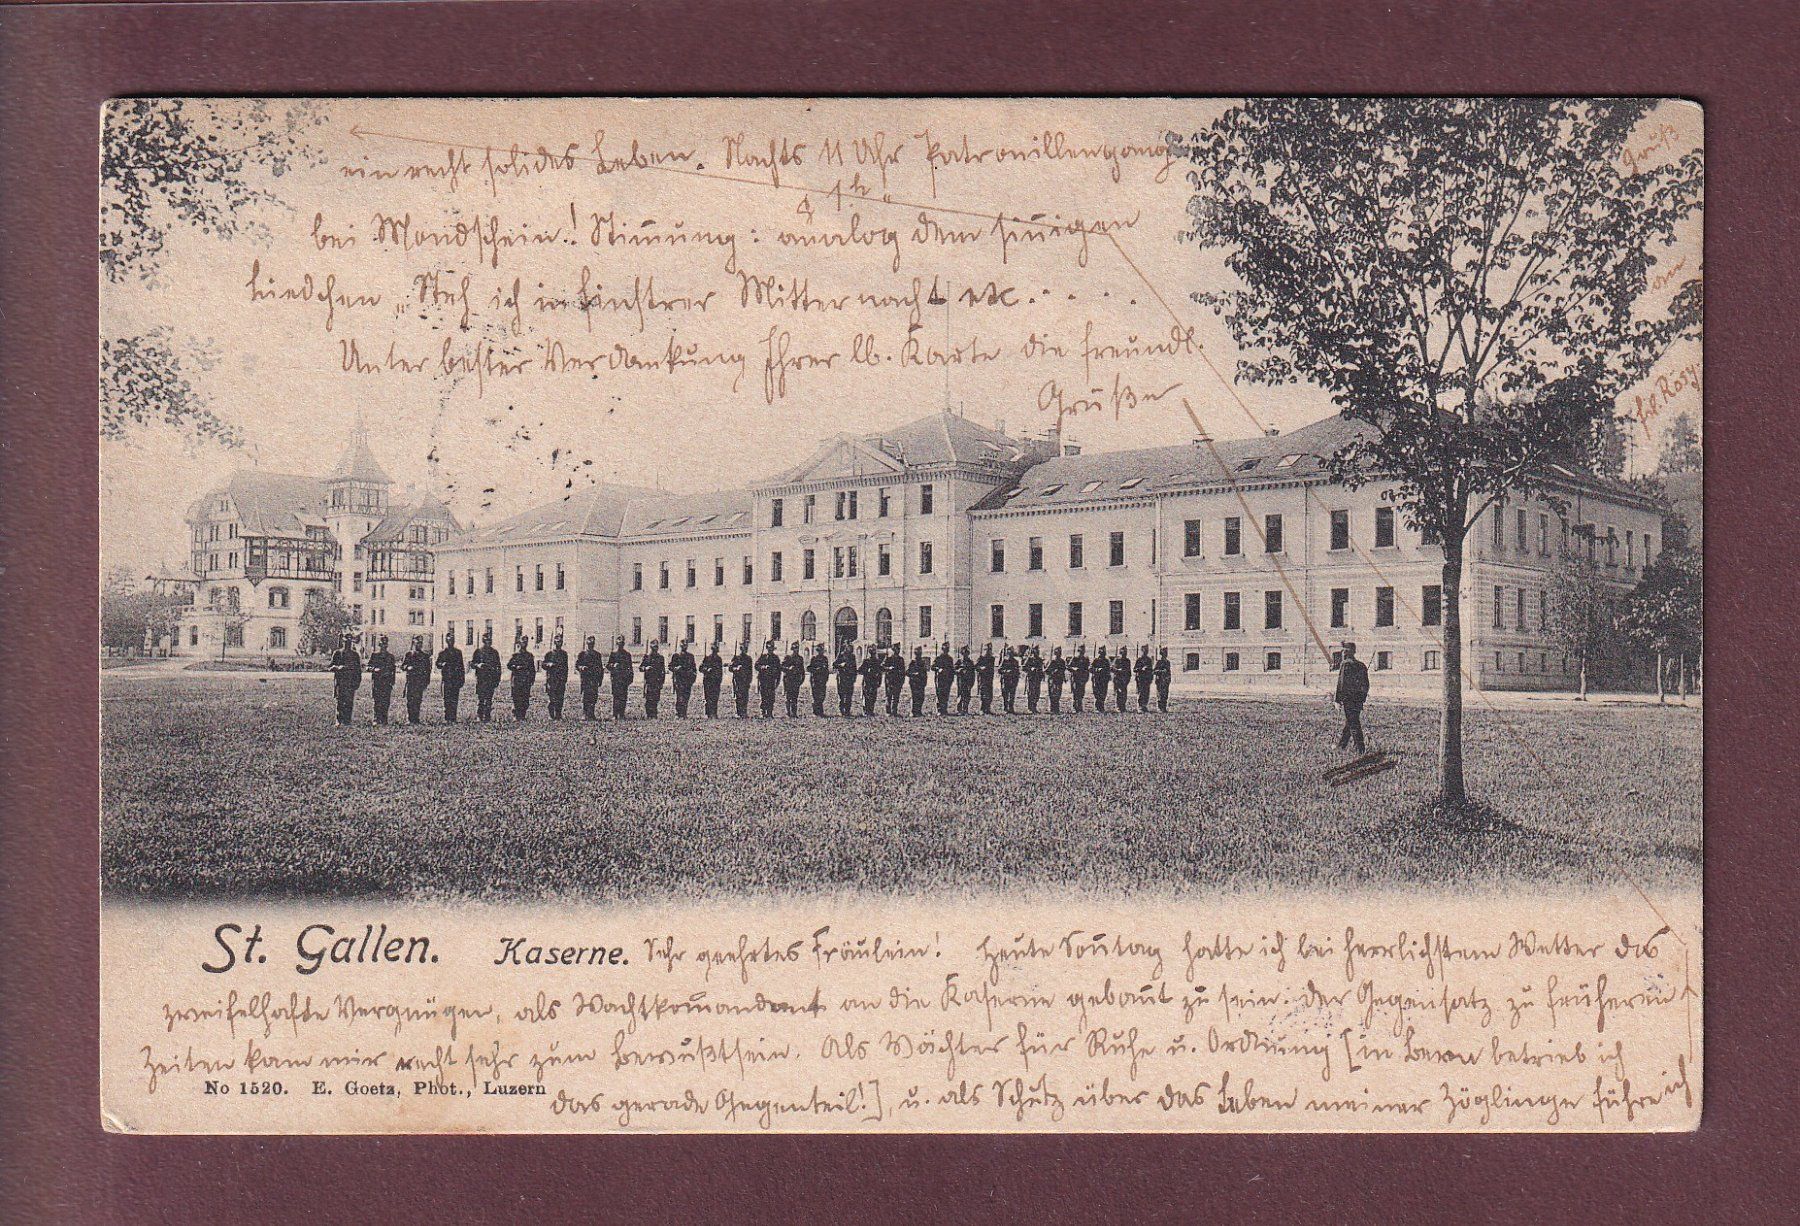 St. Gallen. Kaserne. Sehr geehrtes Fräulein! Heute Son̄tag hatte ich bei herrlichstem Wetter das
zweifelhafte Vergnügen, als Wachtkom̄andant an die Kaserne gebannt zu sein. Der Gegensatz zu früheren
Zeiten kam mir recht sehr zum Bewußtsein. Als Wächter für Ruhe u. Ordnung [in Bern betrieb ich
No 1520. E. Goetz, Phot., Luzern
das gerade Gegenteil!], u. als Schutz über das Leben meiner Zöglinge führe ich
ein recht solides Leben. Nachts 11 Uhr Patrouillengang
" 1 h "
bei Mondschein! Stim̄ung: analog dem sin̄igen
Liedchen „Steh ich in finstrer Mitternacht etc.....
Unter bester Verdankung Ihrer lb. Karte die freundl.
Grüße
Gruß
an
frl. Rösy